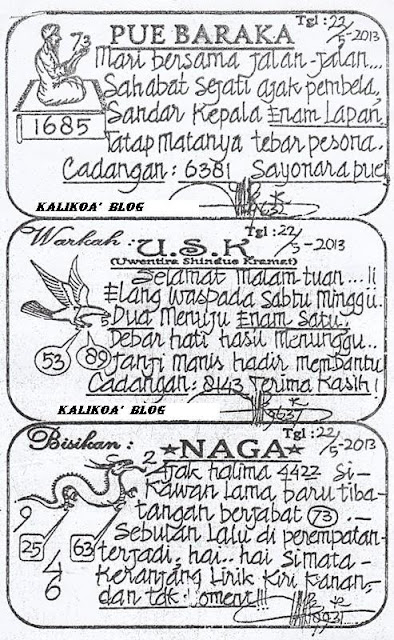 Tgl : 22/5-2013
PUE BARAKA
73
Mari bersama jalan-jalan...
Sahabat sejati ajak pembela,
Sandar Kepala Enam Lapan.
Tatap matanya tebar pesona.
1685
Cadangan : 6381 Sayonara pue
KALIKOA' BLOG
Warkah : Tgl : 22/5-2013
U.S.K
(Uwentira Shindue Kramat)
Selamat malam tuan...!!
Elang waspada Sabtu Minggu.
Dua Menuju Enam Satu.
Debar hati hasil menunggu..
53 89
Janji manis hadir membantu
Cadangan : 8143 Terima Kasih!
KALIKOA' BLOG
Bisikan : Tgl : 22/5-2013
★NAGA★
2
Ajak halima 4422 Si-
Kawan lama baru tiba-
tangan berjabat 73 .-
9
Sebutan lalu di perempatan-
25 63
terjadi, hai.. hai si mata-
4
Keranjang lirik kiri kanan,-
6
dan tak